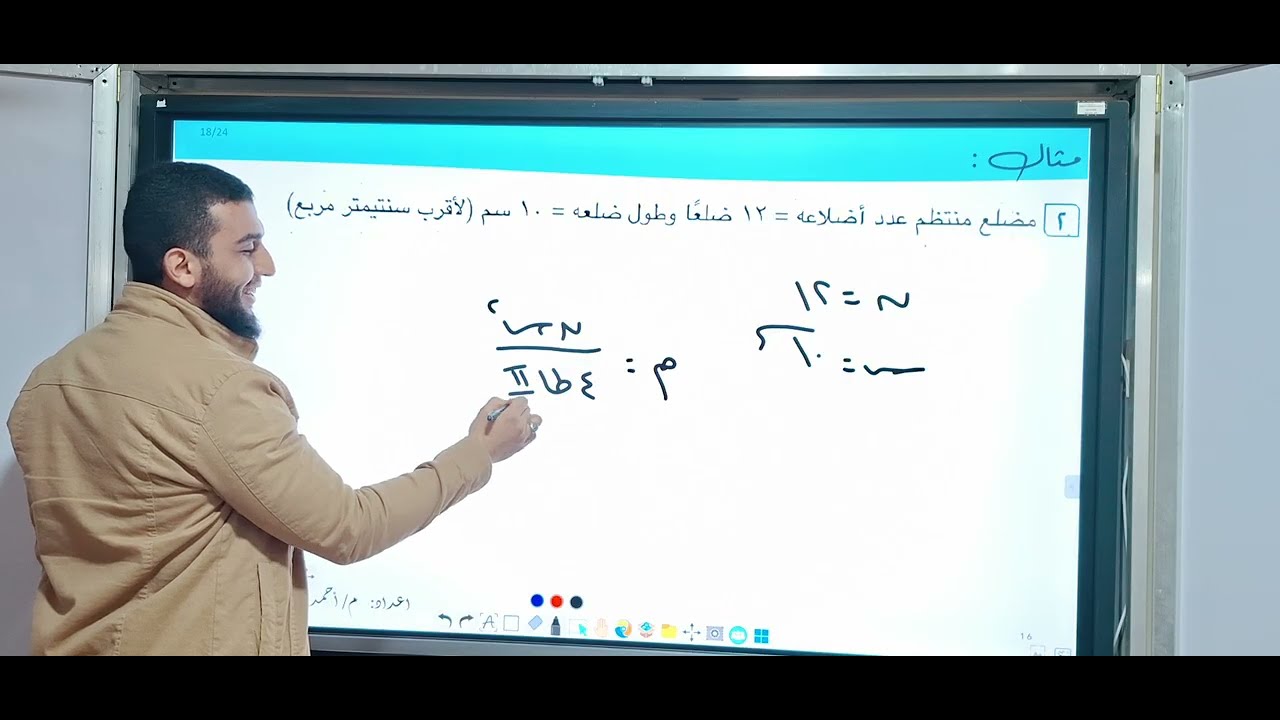 18/24
مثال :
٢ مضلع منتظم عدد أضلاعه = ١٢ ضلعًا وطول ضلعه = ١٠ سم (لأقرب سنتيمتر مربع)
ن = ١٢
س = ١٠
م = ن س٢ / ٤ طا π
اعداد: م/أحمد
16